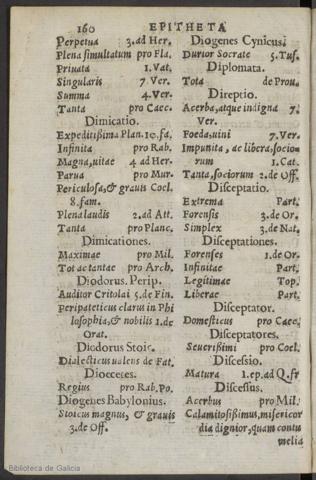 160 EPITHETA
Perpetua 3.ad Her.
Plena simultatum pro Fla.
Priuata 1.Vat.
Singularis 7.Ver.
Summa 4.Ver.
Tanta pro Caec.
Dimicatio.
Expeditißima Plan.10.fa.
Infinita pro Rab.
Magna, uitae 4 ad Her.
Parua pro Mur.
Periculosa, & grauis Coel.
8.fam.
Plena laudis 2.ad Att.
Tanta pro Planc.
Dimicationes.
Maximae pro Mil.
Tot ac tantae pro Arch.
Diodorus. Perip.
Auditor Critolai 5.de Fin.
Peripateticus clarus in Phi
losophia, & nobilis 1.de
Orat.
Diodorus Stoic.
Dialecticus ualens de Fat.
Dioeceses.
Regius pro Rab. Po.
Diogenes Babylonius.
Stoicus magnus, & grauis
3.de Off.
Diogenes Cynicus.
Durior Socrate 5.Tus.
Diplomata.
Tota de Prou.
Direptio.
Acerba, atque indigna 7.
Ver.
Foeda, uini 7.Ver.
Impunita, ac libera, socio-
rum 1.Cat.
Tanta, sociorum 2.de Off.
Disceptatio.
Extrema Part.
Forensis 3.de Or.
Simplex 3.de Nat.
Disceptationes.
Forenses 1.de Or.
Infinitae Part.
Legitimae Top.
Liberae Part.
Disceptator.
Domesticus pro Caec.
Disceptatores.
Seuerißimi pro Coel.
Discessio.
Matura 1.ep.ad Q.fr
Discessus.
Acerbus pro Mil.
Calamitosißimus, misericor
dia dignior, quam contu
melia
Biblioteca de Galicia